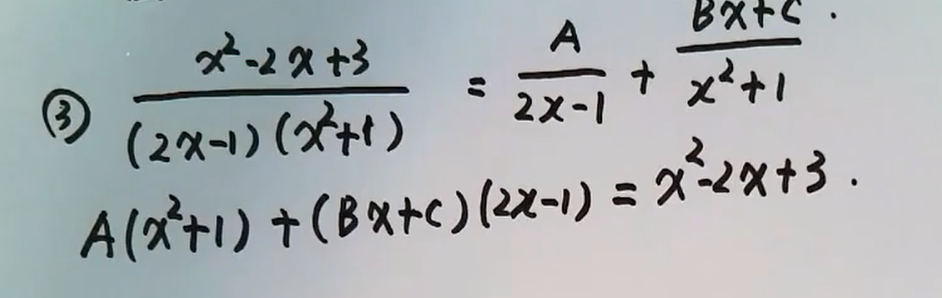 ③ (x²-2x+3)/((2x-1)(x²+1)) = A/(2x-1) + (Bx+C)/(x²+1).
A(x²+1)+(Bx+C)(2x-1)=x²-2x+3.